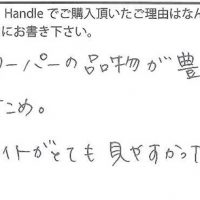 Handle でご購入頂いたご理由はなん
にお書き下さい。
ーパーの品物が豊
ため。
イトがとても見やすかった